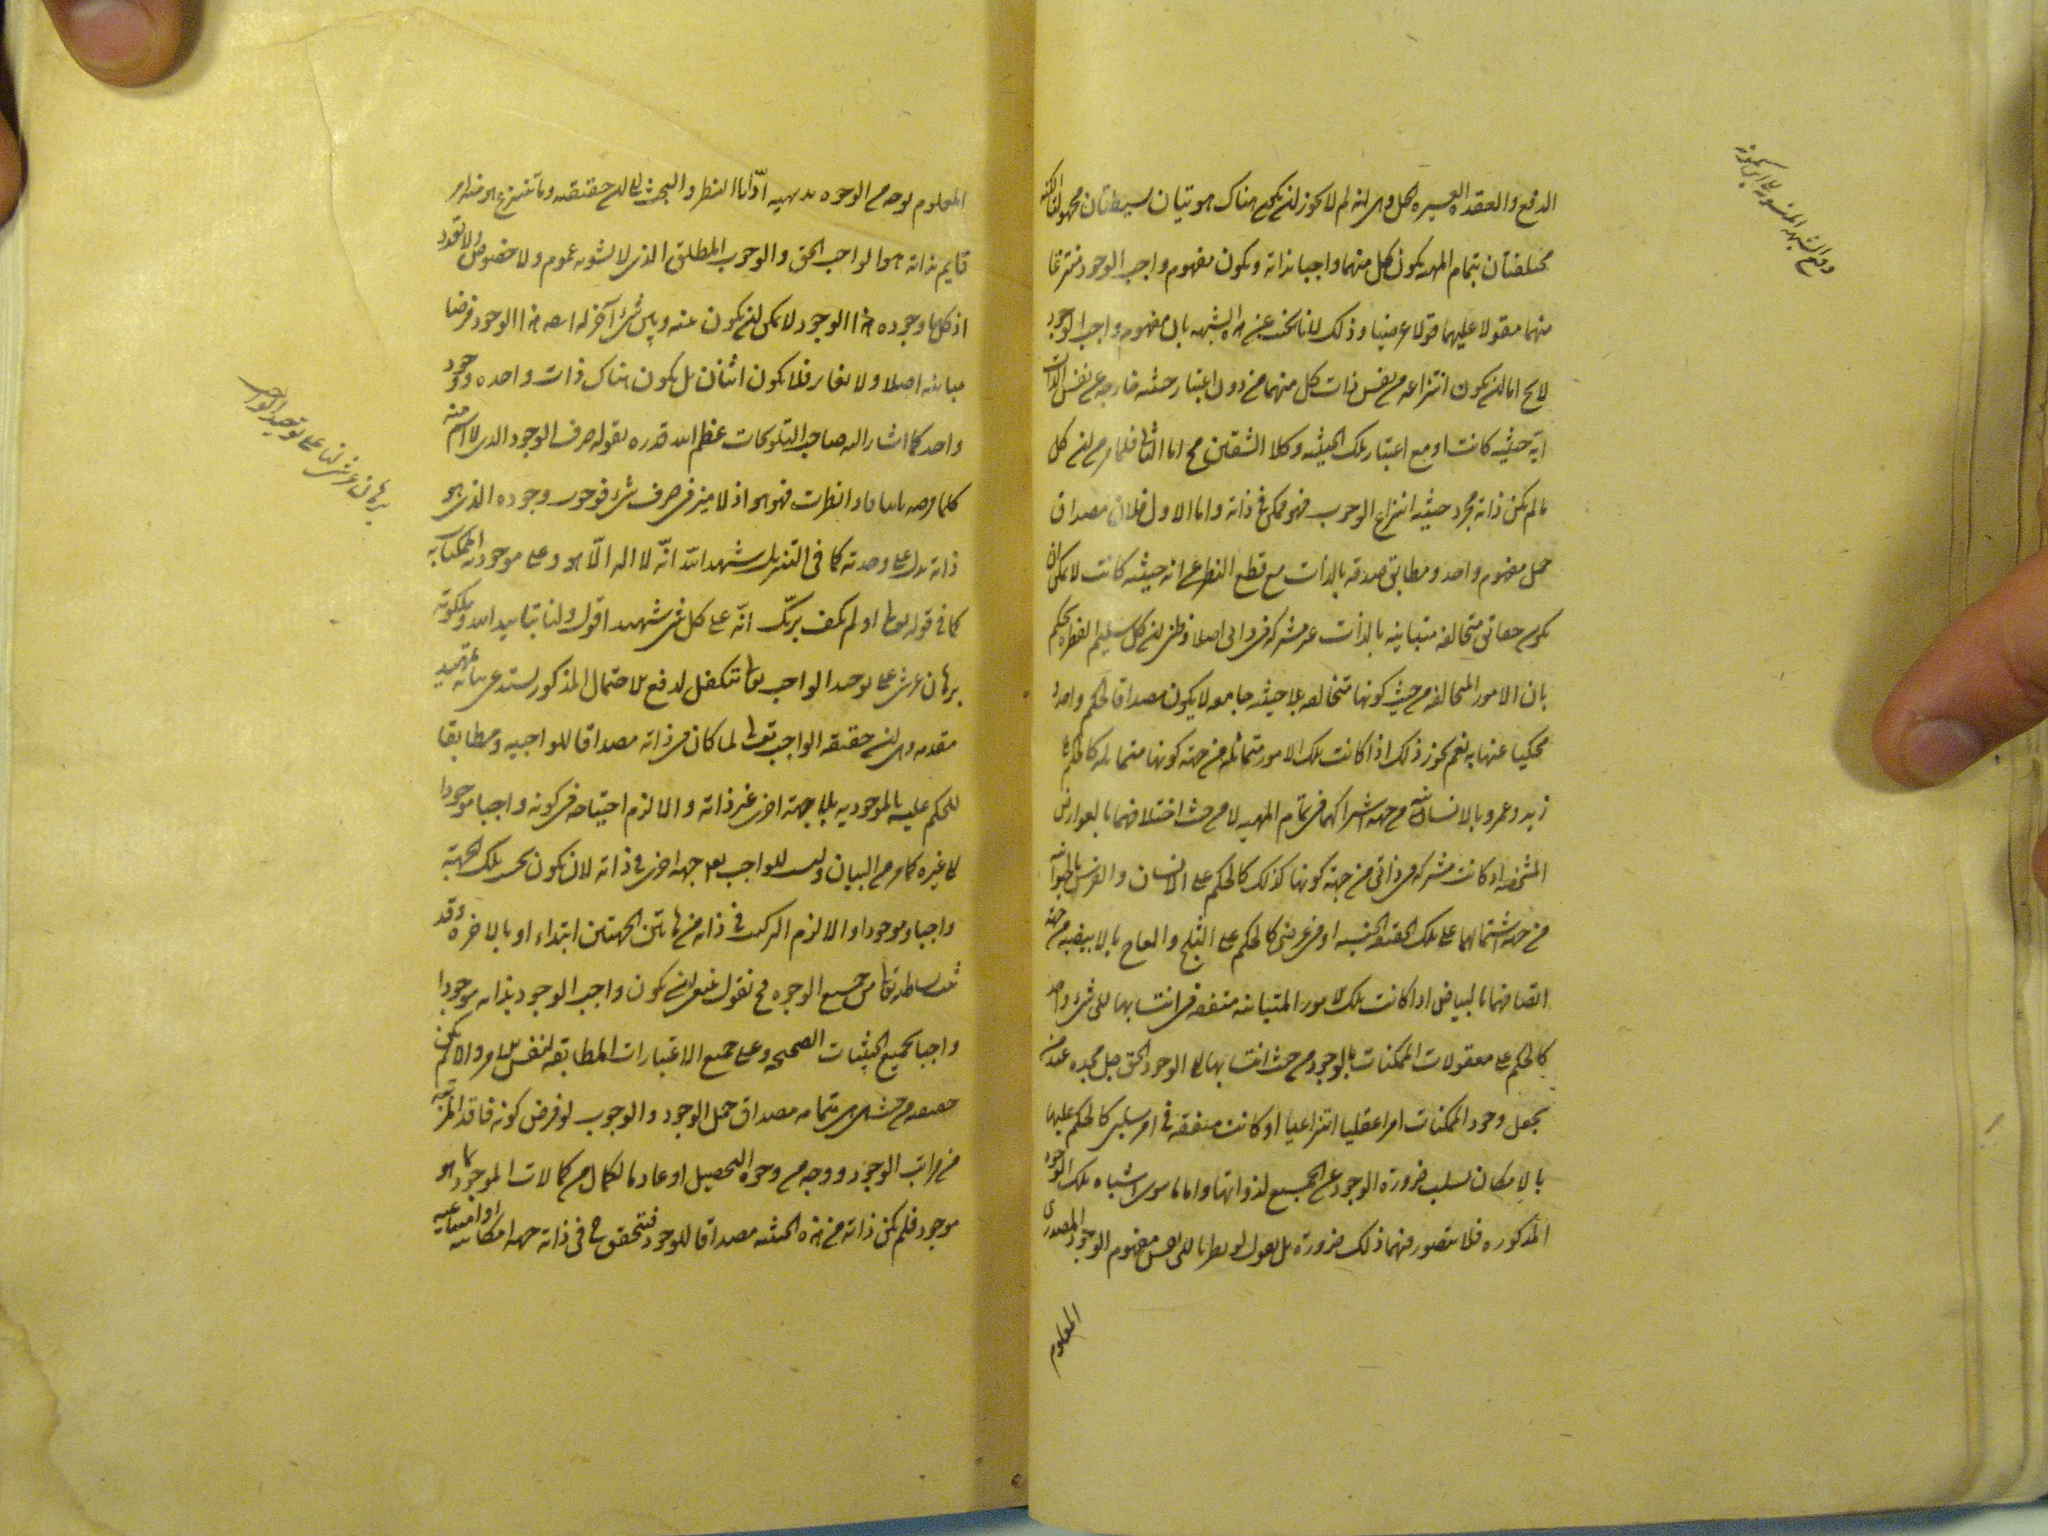 الدفع والعقدة العسيرة الحل وهى انه لم لا يجوز ان يكون هناك هويتان بسيطتان مجهولتا الكنه
مختلفتان بتمام المهية يكون كل منهما واجبا بذاته ويكون مفهوم واجب الوجود منتزعا
منهما مقولا عليهما قولا عرضيا وذلك لانا نجيب عن هذه الشبهة بان مفهوم واجب الوجود
لا يخ اما ان يكون انتزاعه من نفس ذات كل منهما من دون اعتبار حيثية خارجة عن نفس الذات
اية حيثية كانت او مع اعتبار تلك الحيثية وكلا الشقين مح اما الثانى فلما مر من ان كل
ما لم يكن ذاته مجرد حيثية انتزاع الوجوب فهو ممكن فى ذاته واما الاول فلان مصداق
حمل مفهوم واحد ومطابق صدقه بالذات مع قطع النظر عن اية حيثية كانت لا يمكن ان
يكون حقائق متخالفة متباينة بالذات غير مشتركة فى ذاتى اصلا وظنى ان كل سليم الفطرة يحكم
بان الامور المتخالفة من حيث كونها متخالفة بلا حيثية جامعة لا يكون مصداقا لحكم واحد
محكيا عنها به نعم يجوز ذلك اذا كانت تلك الامور متماثلة من جهة كونها متماثلة كالحكم على
زيد وعمرو بالانسانية من جهة اشتراكهما فى تمام المهية لا من حيث اختلافهما بالعوارض
المشخصة او كانت مشتركة فى ذاتى من جهة كونها كذلك كالحكم على الانسان والفرس بالحيوانية
من جهة اشتمالهما على تلك الحقيقة الجنسية او فى عرضى كالحكم على الثلج والعاج بالابيضية من جهة
اتصافهما بالبياض او كانت تلك الامور المتباينة متفقة فى انتسابها الى شىء واحد
كالحكم على مقولات الممكنات بالوجود من حيث انتسابها الى الوجود الحق جل مجده عند من
يجعل وجود الممكنات امرا عقليا انتزاعيا او كانت متفقة فى امر سلبى كالحكم عليها
بالامكان لسلب ضرورة الوجود عن الجميع لذواتها واما ما سوى اشباه تلك الوجوه
المذكورة فلا يتصور فيها ذلك ضرورة بل نقول لو نظرنا الى نفس مفهوم الوجود المصدرى
المعلوم
دفع الشبهة المنسوبة الى ابن كمونة
المعلوم بوجه من الوجوه بديهية ادّانا النظر والبحث الى ان حقيقته وما ينتزع هو منه امر
قايم بذاته هو الواجب الحق والوجود المطلق الذى لا يشوبه عموم ولا خصوص ولا تعدد
اذ كل ما وجوده هذا الوجود لا يمكن ان يكون بينه وبين شىء آخر له ايضه هذا الوجود فرضا
مباينة اصلا ولا تغاير فلا يكون اثنان بل يكون هناك ذات واحدة ووجود
واحد كما اشار اليه صاحب التلويحات عظم الله قدره بقوله صرف الوجود الذى لا اتم منه
كلما فرضته ثانيا فاذا نظرت فهو هو اذ لا ميز فى صرف شىء فوجوب وجوده الذى هو
ذاته يدل على وحدته كما فى التنزيل شهد الله انّه لا اله الّا هو وعلى موجودية الممكنات به
كما فى قوله تعالى او لم يكف بربّك انّه على كل شىء شهيد اقول ولنا بتاييد الله وملكوته
برهان عرشى على توحيد الواجب تعالى تتكفل لدفع الاحتمال المذكور يستدعى بيانه تمهيد
مقدمة وهى ان حقيقة الواجب تعالى لما كان فى ذاته مصداقا للواجبية ومطابقا
للحكم عليه بالموجودية بلا جهة اخرى غير ذاته والا لزم احتياجه فى كونه واجبا موجودا
الى غيره كما مر من البيان وليست للواجب تعالى جهة اخرى فى ذاته لا يكون بحسب تلك الجهة
واجبا وموجودا والا لزم التركيب فى ذاته من هاتين الجهتين ابتداء او بالاخرة وقد
ثبت بساطته تعالى من جميع الوجوه فح نقول يلزم ان يكون واجب الوجود بذاته موجودا
واجبا بجميع الحيثيات الصحيحة وعلى جميع الاعتبارات المطابقة لنفس الامر والا لم يكن
حقيقته من حيث هى بتمامه مصداق حمل الوجود والوجوب لو فرض كونه فاقدا لمرتبة
من مراتب الوجود ووجه من وجوه التحصيل او عادما لكمال من كمالات الموجود بما هو
موجود فلم يكن ذاته من هذه الحيثية مصداقا للوجود فتحقق ح فى ذاته جهة امكانية او امتناعية
برهان عرشى لنا على توحيد الواجب